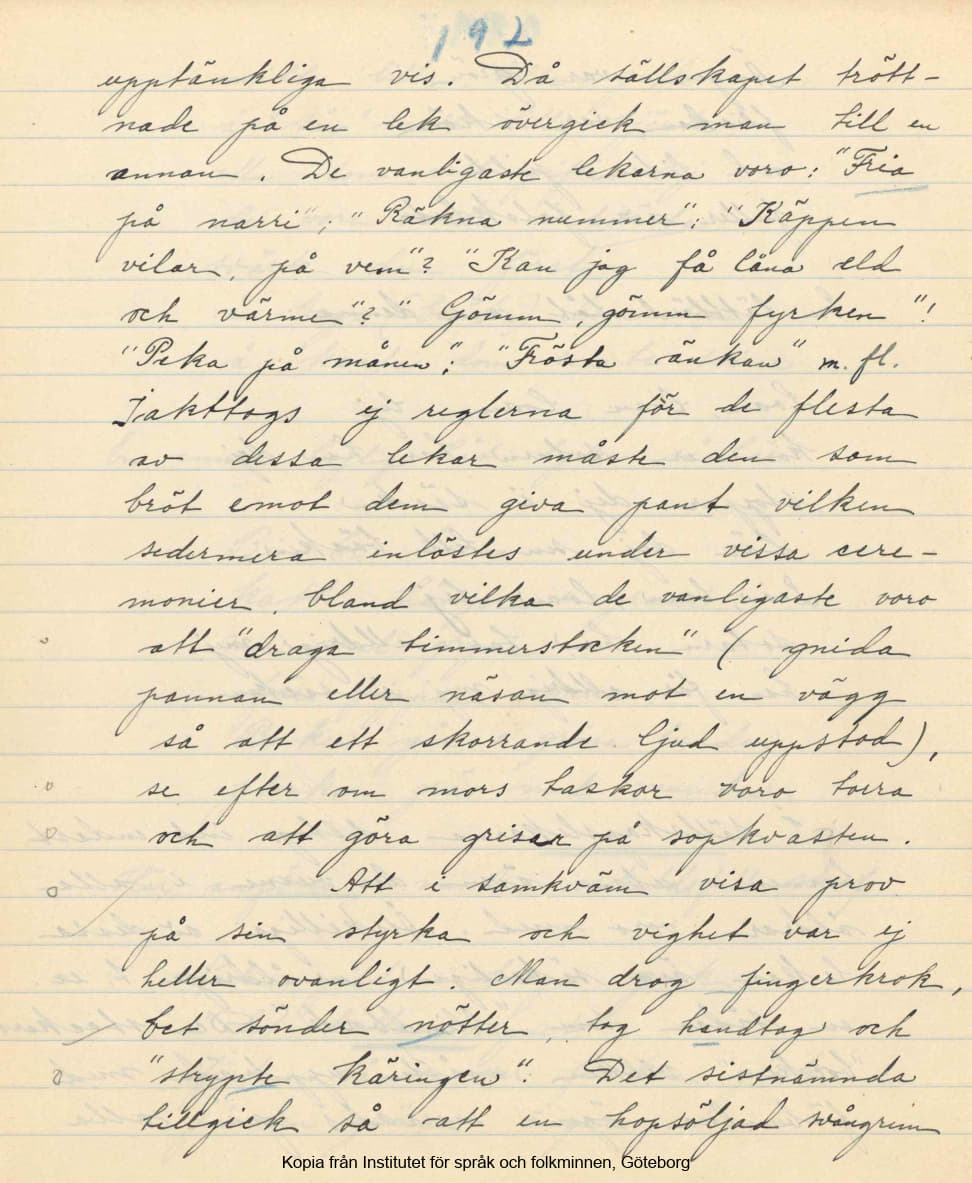 192
upptänkliga vis. Då sällskapet trött-
nade på en lek övergick man till en
annan. De vanligaste lekarna voro: "Fria
på narri"; "Räkna nummer"; "Käppen
vilar, på vem"? "Kan jag få låna eld
och värme"? "Gömm, gömm fyrken"!
"Peka på månen"; "Trösta änkan" m. fl.
Iakttogs ej reglerna för de flesta
av dessa lekar måste den som
bröt emot dem giva pant vilken
sedermera inlöstes under vissa cere-
monier, bland vilka de vanligaste voro
att "draga timmerstocken" ( gnida
pannan eller näsan mot en vägg
så att ett skorrande ljud uppstod),
se efter om mors taskor voro torra
och att göra grisar på sopkvasten.
Att i samkväm visa prov
på sin styrka och vighet var ej
heller ovanligt. Man drog fingerkrok,
bet sönder nötter, tog handtag och
"strypte käringen". Det sistnämnda
tillgick så att en hopsöljad svångrem
Kopia från Institutet för språk och folkminnen, Göteborg